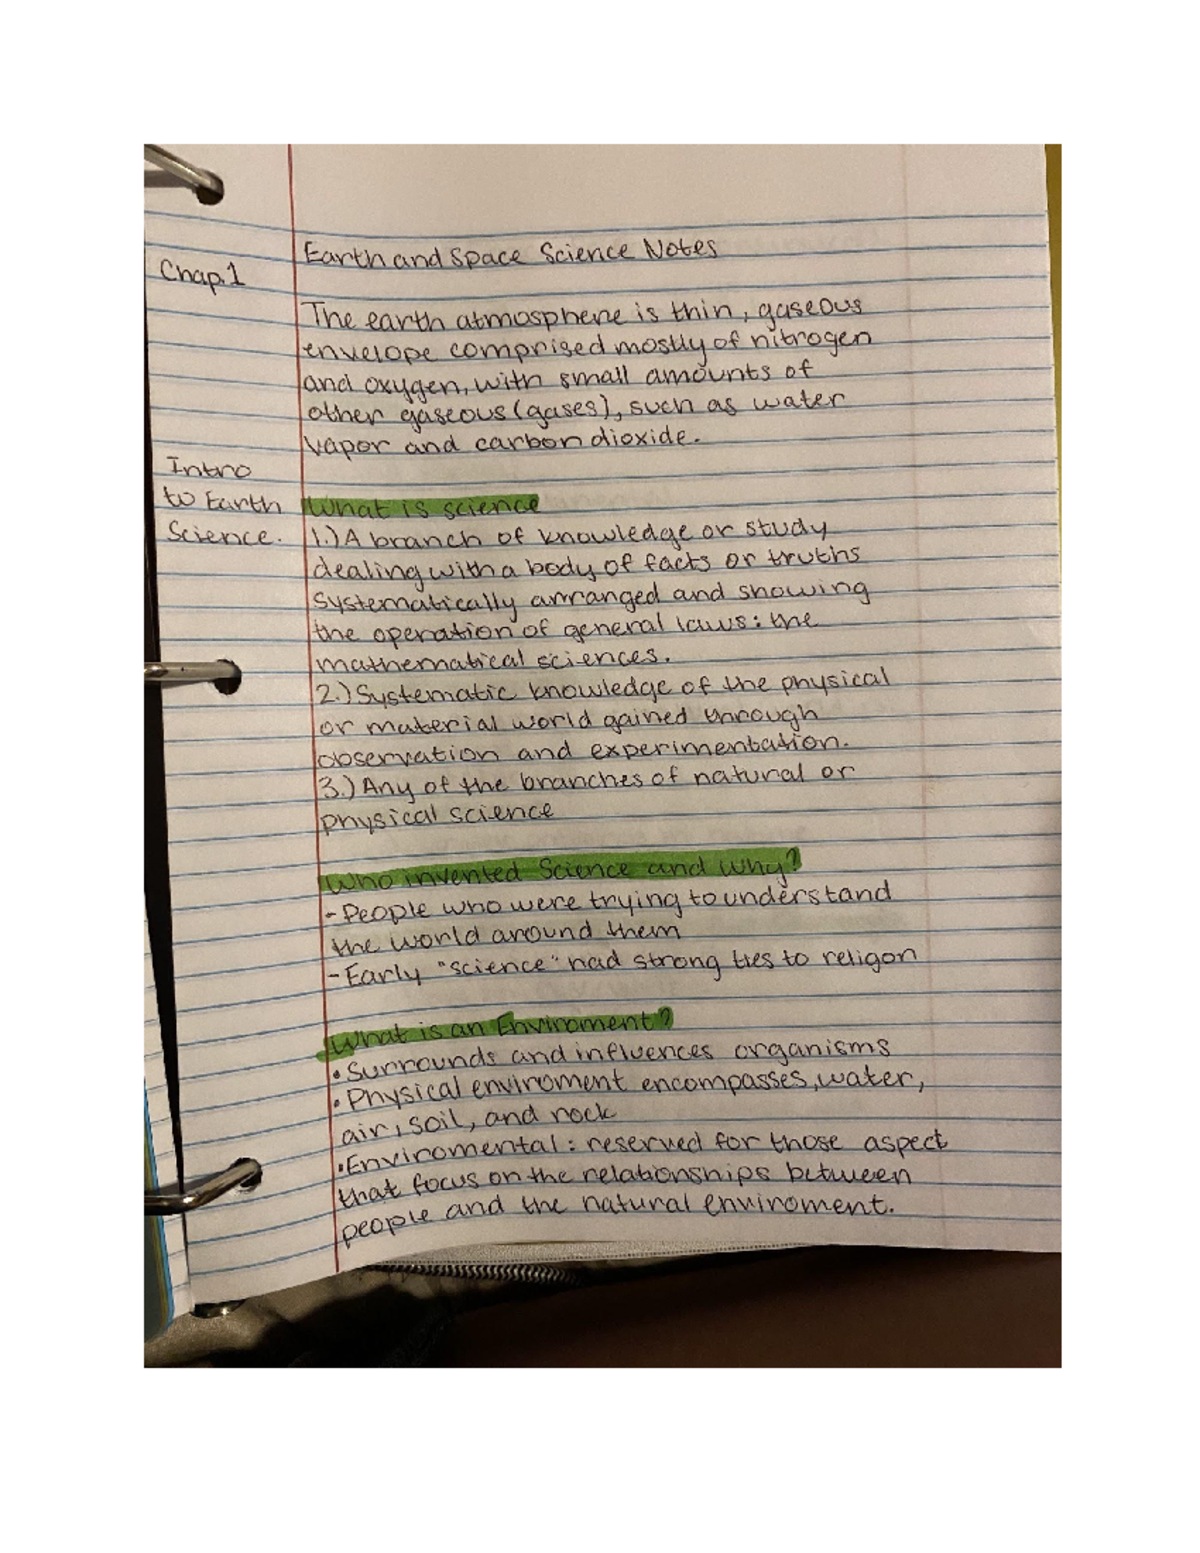 Earth and Space Science Notes
Chap.1
The earth atmosphere is thin, gaseous
envelope comprised mostly of nitrogen
and oxygen, with small amounts of
other gaseous (gases), such as water
vapor and carbon dioxide.
Intro
to Earth
Science.
What is science
1.) A branch of knowledge or study
dealing with a body of facts or truths
systematically arranged and showing
the operation of general laws: the
mathematical sciences.
2.) Systematic knowledge of the physical
or material world gained through
observation and experimentation.
3.) Any of the branches of natural or
physical science
Who invented Science and why?
- People who were trying to understand
the world around them
- Early "science" had strong ties to religon
What is an Enviroment?
• Surrounds and influences organisms
• Physical enviroment encompasses, water,
air, soil, and rock
• Enviromental: reserved for those aspect
that focus on the relationships between
people and the natural enviroment.